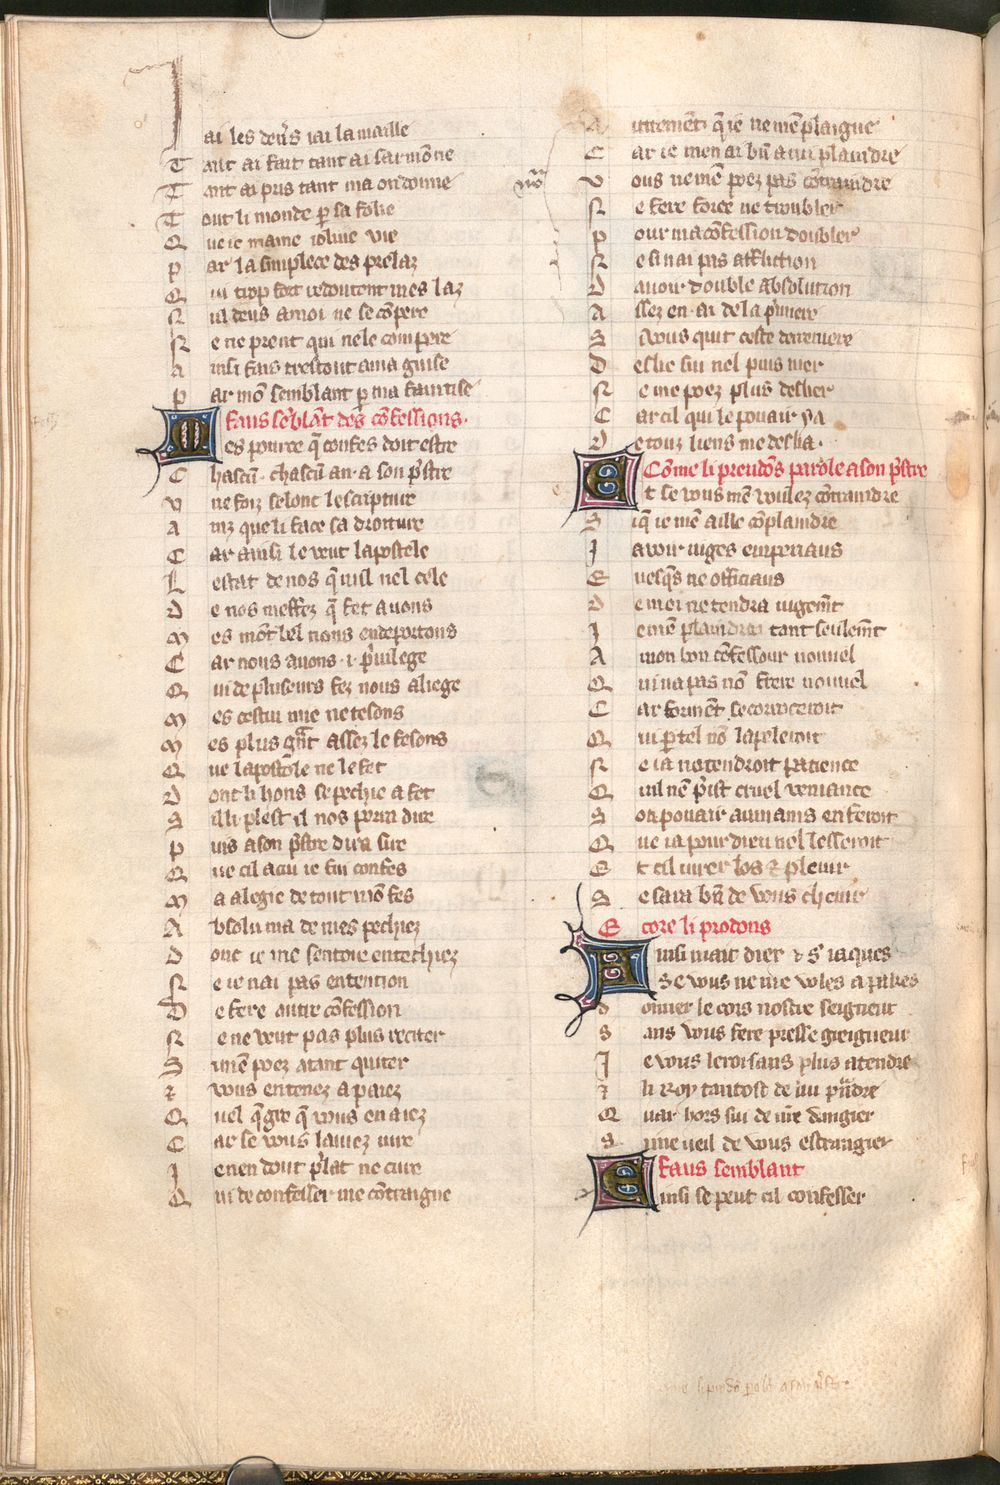 J ai les deñs iai la maille
T ant ai fait tant ai sarmõne
T ant ai pris tant ma on donne
T out li monde p̲ sa folie
Q ue ie maine ioliue vie
P ar la simplece des prelaz
Q ui trop fort redoutent mes laz
N ul deus a moi ne se cõpere
N e ne prent qui nele compere
A insi fais trestout a ma guise
P ar mõ semblant p̲ ma faintise
faus sẽblãt des cõfessions.
M es pource q̃ confes doit estre
C hascũ. chascũ an. a son p̃stre
V ne foiz selonc lescripture
A inz que li face sa droiture
C ar ainsi le veut lapostele
L estat de nos q̃ nul nel cele
D e nos meffez q̃ fet auons
M es mõt bel nous endeportons
C ar nous auons .i. p̃uilege
Q ui de pluseurs fez nous aliege
M es cestui mie ne tesons
M es plus g̃nt assez le fesons
Q ue lapostole ne le fet
D ont li hons se pechie a fet
S il li plest il nos porra dire
P uis a son p̃stre dira sire
Q ue cil a cui ie fui confes
M a alegie de tout mõ fes
A bsolu ma de mes pechiez
D ont ie me sentoie entechiez
N e ie nai pas entention
D e fere autre cõfession
N e ne veut pas plus reciter
S i mẽ poez atant quiter
Z vous en tenez a paiez
Q uel q̃ gre q̃ vous en aiez
C ar se vous lauiez iure
J e nen dout p̃lat ne cure
Q ui de confesser me cõtraigne
A utremẽt q̃ ie ne mẽ plaigne
C ar ie men ai bñ a cui plaindre
V ous ne mẽ poez pas cõtraindre
N e fere force ne troubler
P our ma cõfession doubler
N e si nai pas affection
D auoir double absolution
A ssez en. ai de la p̃miere
S i vous quit ceste derreniere
D eslie sui nel puis nier
N e me poez plus deslier
C ar cil qui le pouair y a
D e touz liens me deslia.
Cõme li preudõs parole a son p̃stre
E t se vous mẽ voulez cõtraindre
S i q̃ ie mẽ aille cõplaindre
J a voir iuges emperiaus
E uesq̃s ne officiaus
D e moi ne tendra iugem̃t
J e mẽ plaindrai tant seulem̃t
A mon bon cõfessour nouuel
Q ui na pas nõ frere nouuel
C ar formẽt se corrouceroit
Q ui p̲ tel nõ lapeleroit
N e ia nentendroit patience
Q uil nẽ p̃ist cruel veniance
S on pouair au mains en feroit
Q ue ia pour dieu nel lesseroit
E t cil iurer los & pleuir
S e sara bñ de vous cheuir
E core li prodons
A insi mait diex & s̃ iaques
S e vous ne me voles a paskes
D onner le cors nostre seigneur
S ans vous fere presse greigneur
J e vous leroi sans plus atendre
Z li Roy tantost de lui p̃ndre
Q uar hors sui de v̄re dangier
S i me ueil de vous estrangier
faus semblant
E insi se peut cil confesser